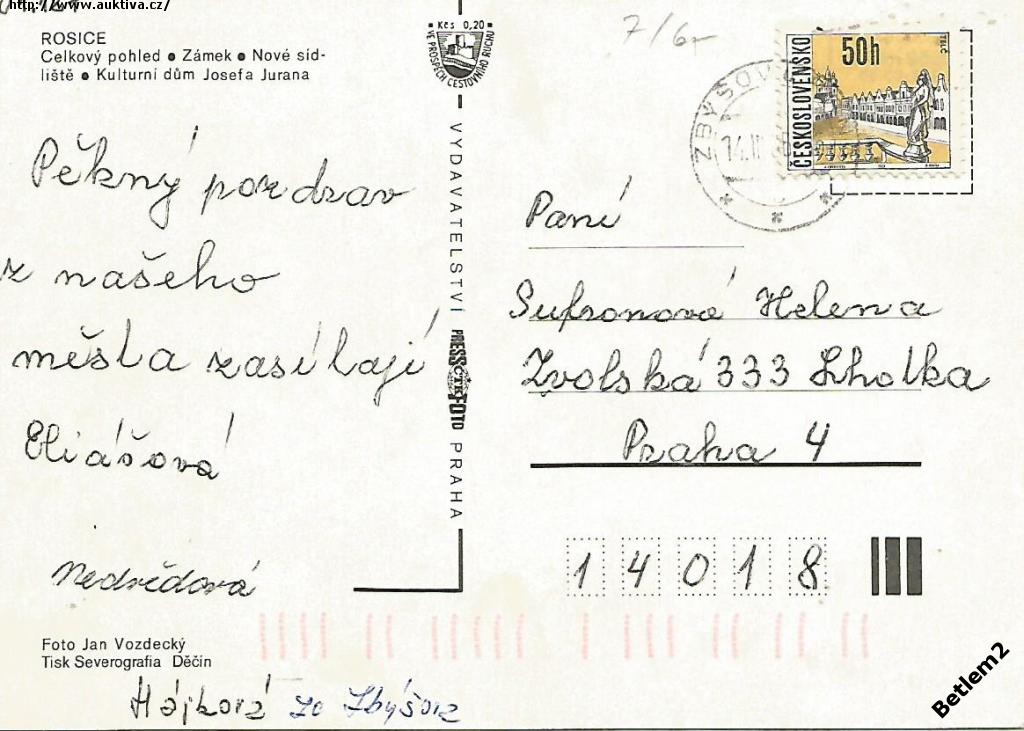 http://www.auktiva.cz/
ROSICE
Celkový pohled • Zámek • Nové síd-
liště • Kulturní dům Josefa Jurana
Kčs 0,20
VE PROSPĚCH CESTOVNÍHO RUCHU
7/6
50h
TELČ
ČESKOSLOVENSKO
ZBÝŠOV
14.II
Pěkný pozdrav
z našeho
města zasílají
Eliášová
Nedvědová
VYDAVATELSTVÍ PRESSFOTO PRAHA
ČTK
Paní
Sufronová Helena
Zvolská 333 Lhotka
Praha 4
14018
Foto Jan Vozdecký
Tisk Severografia Děčín
Hájková ze Zbýšova
Betlem2